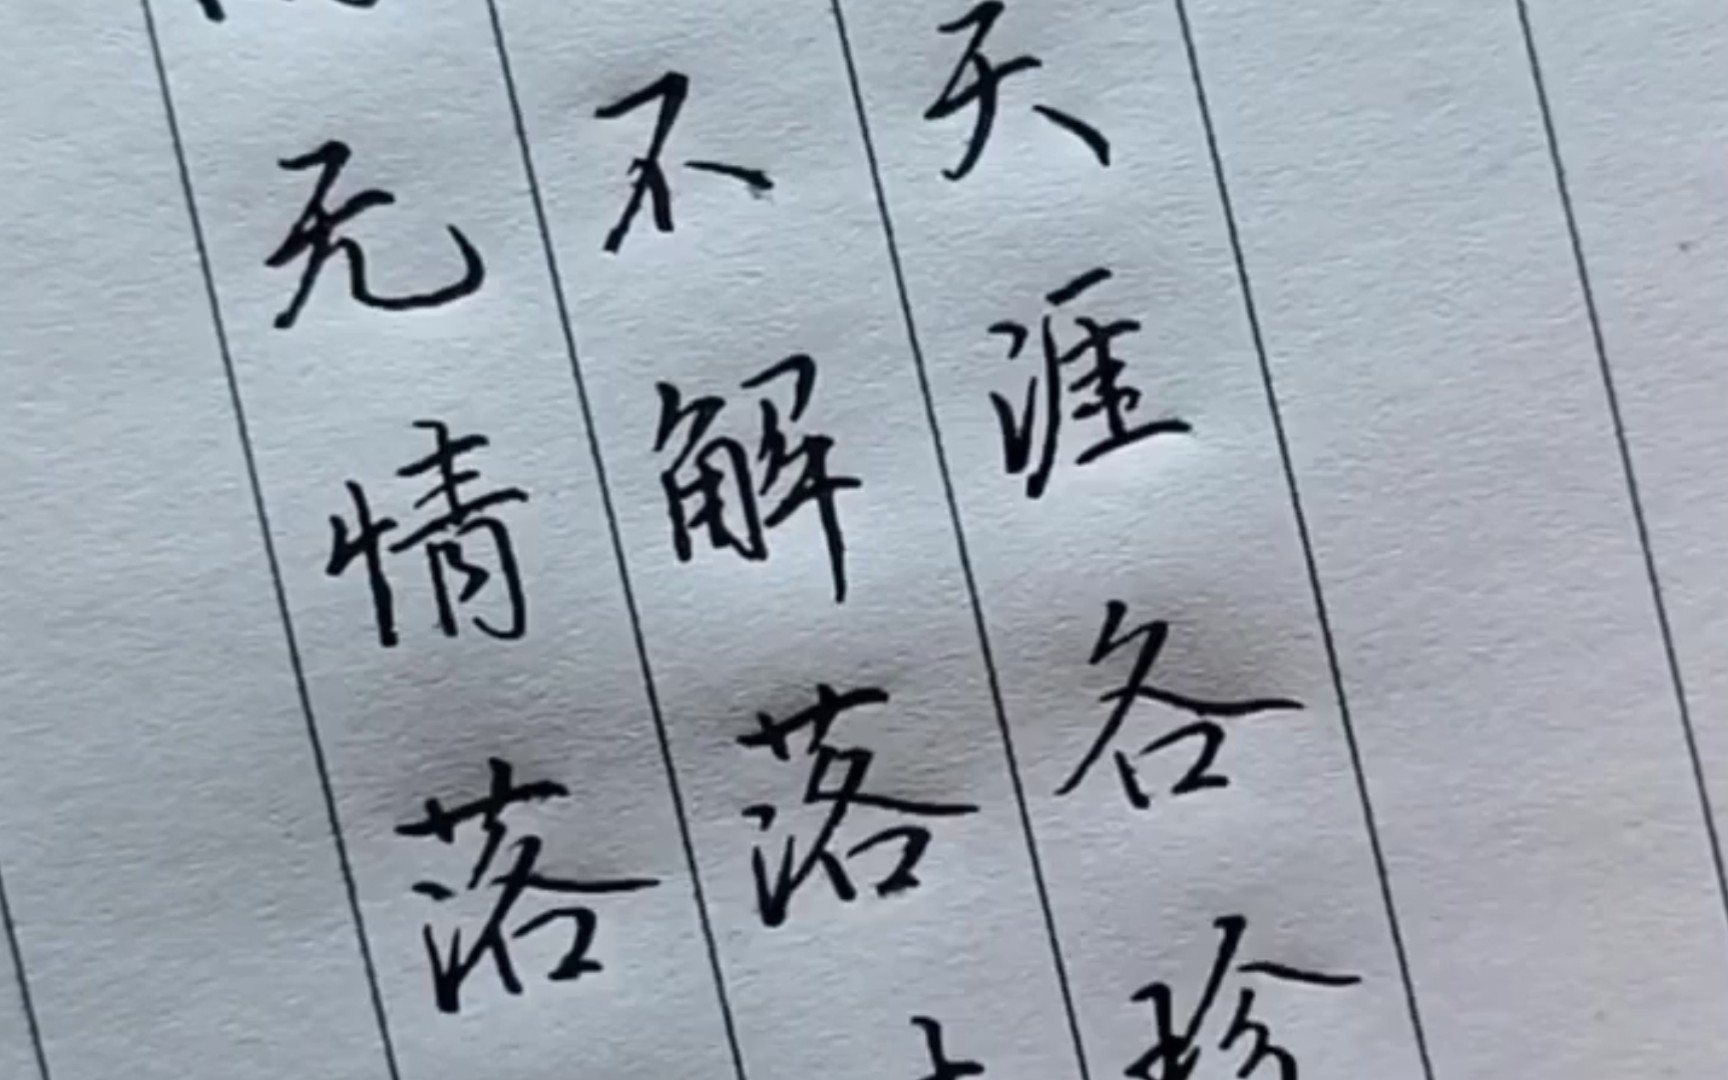 天涯各珍
不解落
无情落